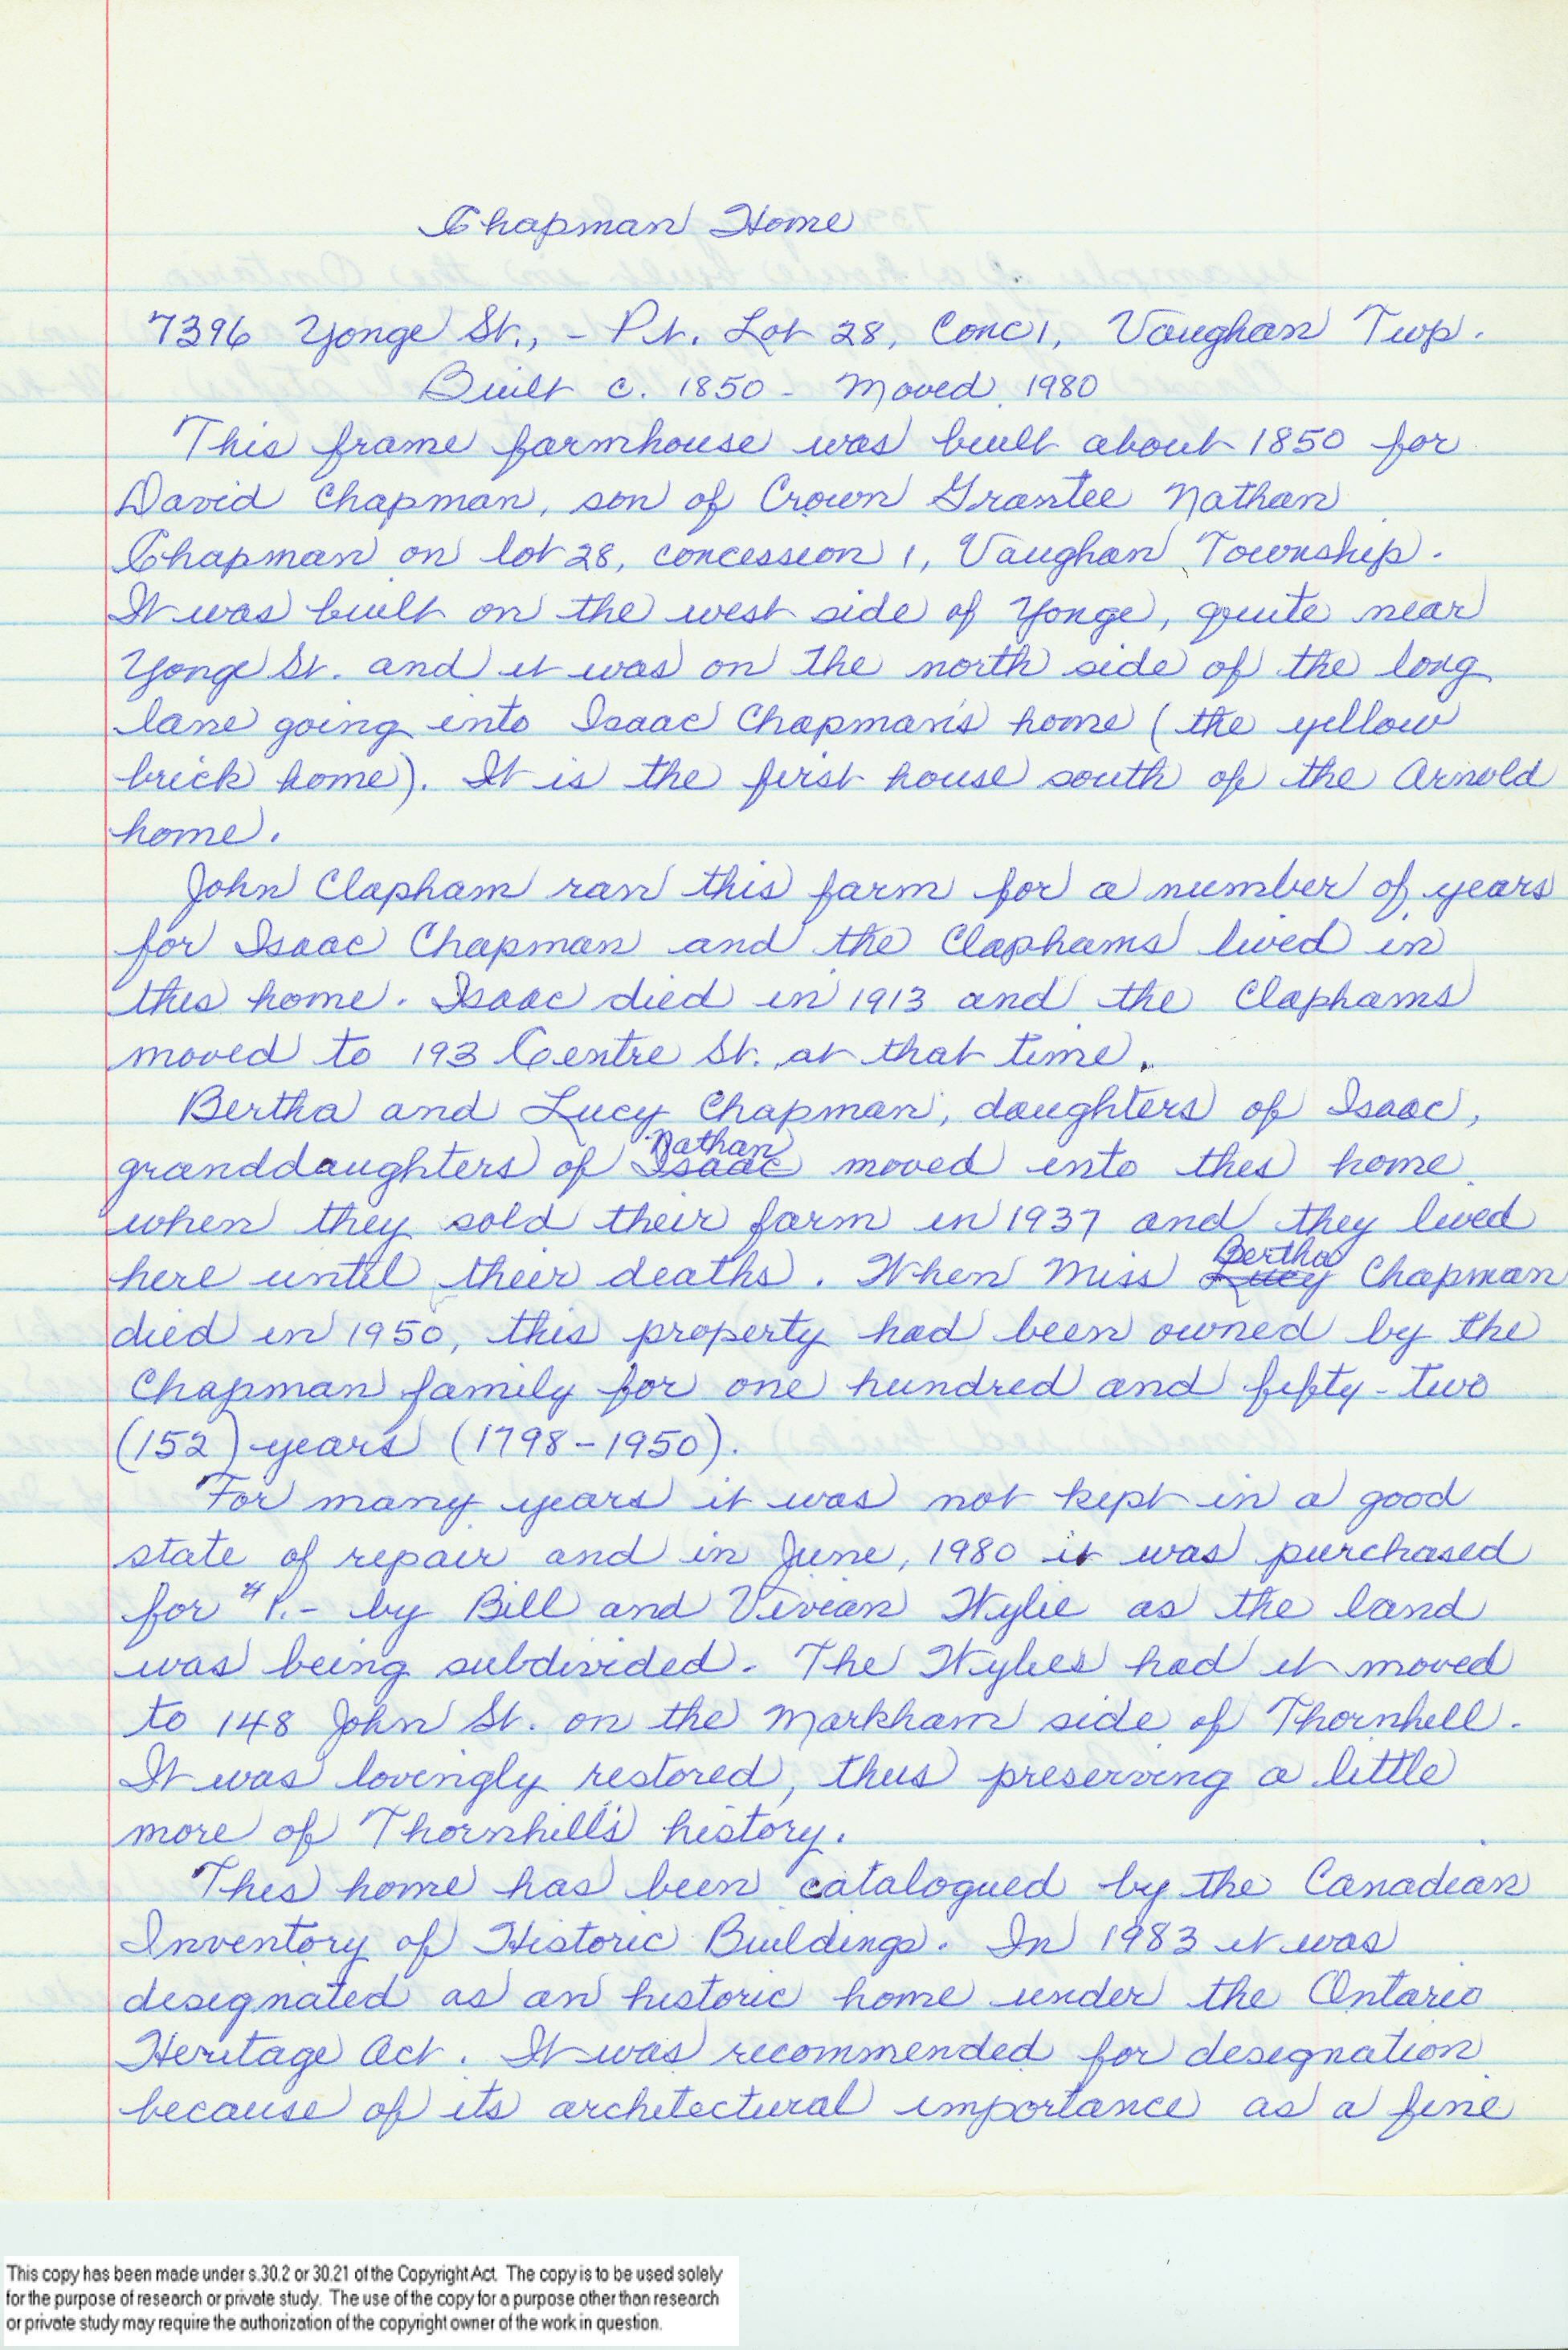 Chapman Home
7396 Yonge St., - Pt. Lot 28, Conc 1, Vaughan Twp.
Built c. 1850 - Moved 1980
This frame farmhouse was built about 1850 for
David Chapman, son of Crown Grantee Nathan
Chapman on lot 28, concession 1, Vaughan Township.
It was built on the west side of Yonge, quite near
Yonge St. and it was on the north side of the long
lane going into Isaac Chapman's home (the yellow
brick home). It is the first house south of the Arnold
home.
John Clapham ran this farm for a number of years
for Isaac Chapman and the Claphams lived in
this home. Isaac died in 1913 and the Claphams
moved to 193 Centre St. at that time.
Bertha and Lucy Chapman, daughters of Isaac,
Nathan
granddaughters of Isaac moved into this home
when they sold their farm in 1937 and they lived
Bertha
here until their deaths. When Miss Lucy Chapman
died in 1950, this property had been owned by the
Chapman family for one hundred and fifty-two
(152) years (1798-1950).
For many years it was not kept in a good
state of repair and in June, 1980 it was purchased
for $1.- by Bill and Vivian Wylie as the land
was being subdivided. The Wylies had it moved
to 148 John St. on the Markham side of Thornhill.
It was lovingly restored, thus preserving a little
more of Thornhill's history.
This home has been catalogued by the Canadian
Inventory of Historic Buildings. In 1983 it was
designated as an historic home under the Ontario
Heritage Act. It was recommended for designation
because of its architectural importance as a fine
This copy has been made under s.30.2 or 30.21 of the Copyright Act. The copy is to be used solely
for the purpose of research or private study. The use of the copy for a purpose other than research
or private study may require the authorization of the copyright owner of the work in question.